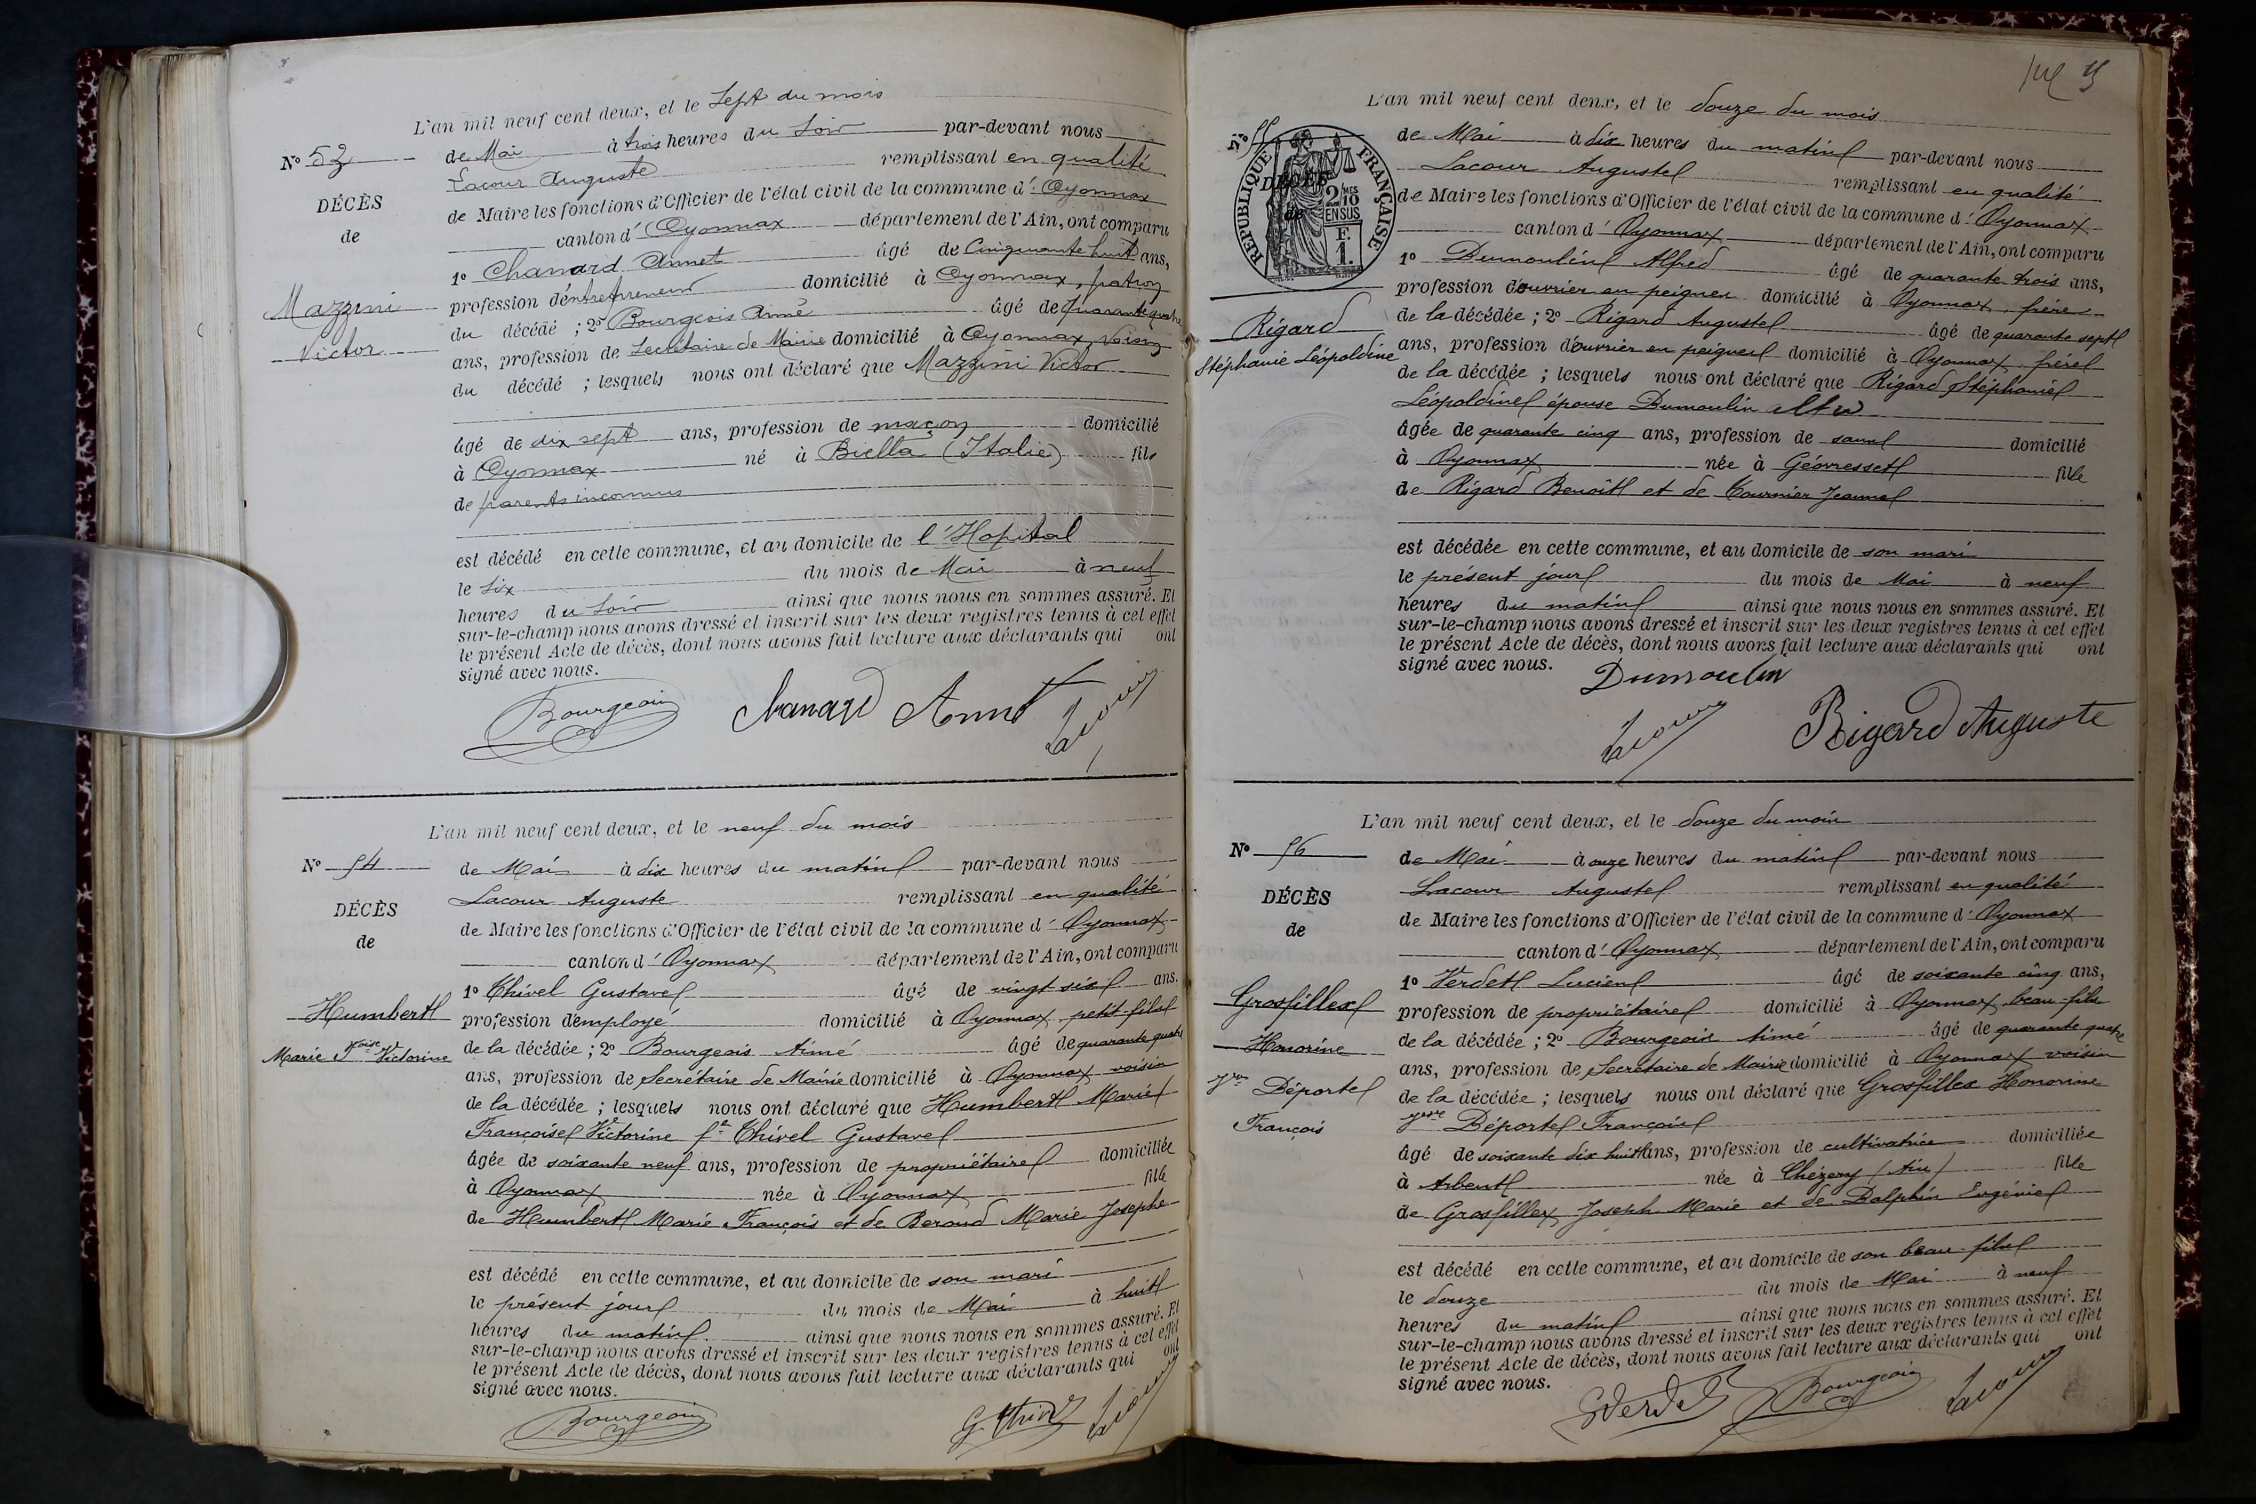 L'an mil neuf cent deux, et le Sept du mois
No 53
de Mai à trois heures du Soir par-devant nous
Lacour Auguste remplissant en qualité
DÉCÈS
de Maire les fonctions d'Officier de l'état civil de la commune d' Oyonnax
de
canton d' Oyonnax département de l'Ain, ont comparu
1o Chanard Annet âgé de Cinquante huit ans,
Mazzini
profession d'entrepreneur domicilié à Oyonnax, patron
du décédé ; 2o Bourgeois Aimé âgé de quarante quatre
Victor
ans, profession de Secrétaire de Mairie domicilié à Oyonnax, Voisin
du décédé ; lesquels nous ont déclaré que Mazzini Victor
âgé de dix sept ans, profession de maçon domicilié
à Oyonnax né à Biella (Italie) fils
de parents inconnus
est décédé en cette commune, et au domicile de l'Hopital
le Six du mois de Mai à neuf
heures du Soir ainsi que nous nous en sommes assuré. Et
sur-le-champ nous avons dressé et inscrit sur les deux registres tenus à cet effet
le présent Acte de décès, dont nous avons fait lecture aux déclarants qui ont
signé avec nous.
Bourgeois Chanard Annet Lacour
L'an mil neuf cent deux, et le neuf du mois
No 54
de Mai à dix heures du matin par-devant nous
Lacour Auguste remplissant en qualité
DÉCÈS
de Maire les fonctions d'Officier de l'état civil de la commune d' Oyonnax
de
canton d' Oyonnax département de l'Ain, ont comparu
1o Thivel Gustave âgé de vingt six ans,
Humbert
profession d'employé domicilié à Oyonnax petit-fils
Marie Foise Victorine
de la décédée ; 2o Bourgeois Aimé âgé de quarante quatre
ans, profession de Secrétaire de Mairie domicilié à Oyonnax voisin
de la décédée ; lesquels nous ont déclaré que Humbert Marie
Françoise Victorine fe Thivel Gustave
âgée de soixante neuf ans, profession de propriétaire domiciliée
à Oyonnax née à Oyonnax fille
de Humbert Marie François et de Beroud Marie Josephe
est décédé en cette commune, et au domicile de son mari
le présent jour du mois de Mai à huit
heures du matin. ainsi que nous nous en sommes assuré. Et
sur-le-champ nous avons dressé et inscrit sur les deux registres tenus à cet effet
le présent Acte de décès, dont nous avons fait lecture aux déclarants qui ont
signé avec nous.
Bourgeois G. Thivel Lacour
L'an mil neuf cent deux, et le douze du mois
No 55
de Mai à dix heures du matin par-devant nous
Lacour Auguste remplissant en qualité
RÉPUBLIQUE FRANÇAISE
2/10 MES EN SUS F. 1.
DÉCÈS
de Maire les fonctions d'Officier de l'état civil de la commune d' Oyonnax
de
canton d' Oyonnax département de l'Ain, ont comparu
1o Dumoulin Alfred âgé de quarante trois ans,
profession d'ouvrier en peignes domicilié à Oyonnax, frère
Rigard
de la décédée ; 2o Rigard Auguste âgé de quarante sept
Stéphanie Léopoldine
ans, profession d'ouvrier en peignes domicilié à Oyonnax frère
de la décédée ; lesquels nous ont déclaré que Rigard Stéphanie
Léopoldine épouse Dumoulin
âgée de quarante cinq ans, profession de sans domicilié
à Oyonnax née à Géovresset fille
de Rigard Benoît et de Tournier Jeanne
est décédée en cette commune, et au domicile de son mari
le présent jour du mois de Mai à neuf
heures du matin ainsi que nous nous en sommes assuré. Et
sur-le-champ nous avons dressé et inscrit sur les deux registres tenus à cet effet
le présent Acte de décès, dont nous avons fait lecture aux déclarants qui ont
signé avec nous.
Dumoulin
Lacour Rigard Auguste
L'an mil neuf cent deux, et le douze du mois
No 56
de Mai à onze heures du matin par-devant nous
Lacour Auguste remplissant en qualité
DÉCÈS
de Maire les fonctions d'Officier de l'état civil de la commune d' Oyonnax
de
canton d' Oyonnax département de l'Ain, ont comparu
1o Verdet Lucien âgé de soixante cinq ans,
Grosfillex
profession de propriétaire domicilié à Oyonnax, beau-fils
Honorine
de la décédée ; 2o Bourgeois Aimé âgé de quarante quatre
ans, profession de Secrétaire de Mairie domicilié à Oyonnax voisin
Vve Déporte
de la décédée ; lesquels nous ont déclaré que Grosfillex Honorine
François
Vve Déporte François
âgé de soixante dix huit ans, profession de cultivatrice domiciliée
à Arbent née à Chézery (Ain) fille
de Grosfillex Joseph Marie et de Dalphin Eugénie
est décédé en cette commune, et au domicile de son beau-fils
le douze du mois de Mai à neuf
heures du matin ainsi que nous nous en sommes assuré. Et
sur-le-champ nous avons dressé et inscrit sur les deux registres tenus à cet effet
le présent Acte de décès, dont nous avons fait lecture aux déclarants qui ont
signé avec nous.
Verdet Bourgeois Lacour